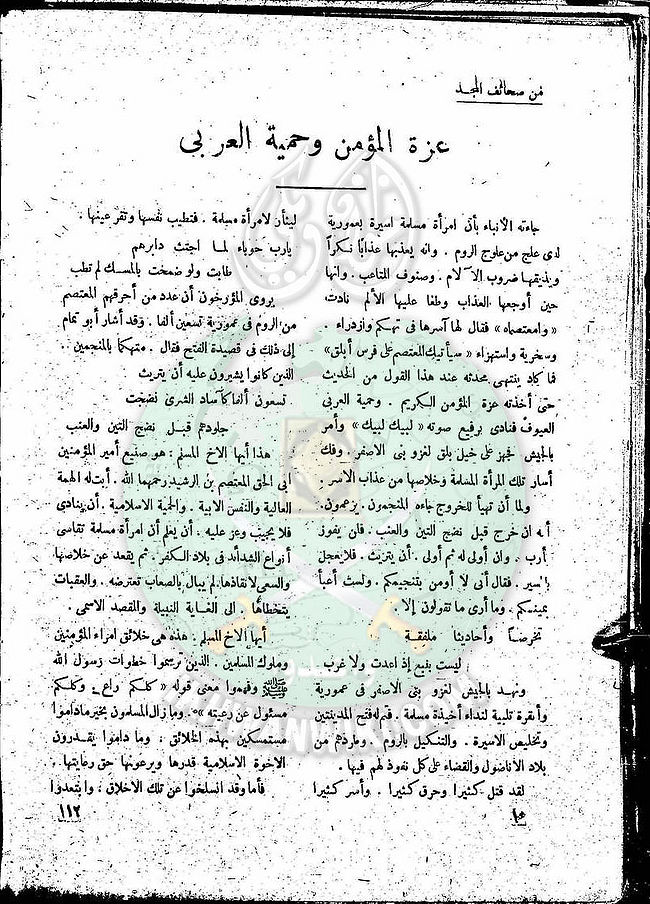 من صحائف المجد
عزة المؤمن وحمية العربى
جاءته الأنباء بأن امرأة مسلمة اسيرة بعمورية
لدى علج من علوج الروم . وانه يعذبها عذابًا نكراً
ويذيقها ضروب الآلام . وصنوف المتاعب . وانها
حين أوجعها العذاب وطغا عليها الألم نادت
« وامعتصماه » فقال لها آسرها فى تهكم وازدراء .
وسخرية واستهزاء « سيأتيك المعتصم على فرس أبلق »
فما كاد ينتهى محدثه عند هذا القول من الحديث
حتى أخذته عزة المؤمن الكريم . وحمية العربى
العيوف فنادى برفيع صوته « لبيك لبيك » وأمر
بالجيش فجهز على خيل بلق لغزو بنى الاصفر . وفك
أسار تلك المرأة المسلمة وخلاصها من عذاب الاسر .
ولما أن تهيأ للخروج جاءه المنجمون . يزعمون .
أنه ان خرج قبل نضج التين والعنب . فلن يفوز
أرب . وان أولى له ثم أولى . أن يتريث . فلا يعجل
بالسير . فقال أنى لا أومن بتنجيمكم . ولست أعبأ
بمينكم . وما أرى ما تقولون إلا .
تخرصاً وأحاديثا ملفقة
ليست بنبع إذ اعدت ولا غرب
ونهد بالجيش لغزو بنى الاصفر فى عمورية
وأنقرة تلبية لنداء أخيذة مسلمة . فتم له فتح المدينتين
وتخليص الاسيرة . والتنكيل بالروم . وطردهم من
بلاد الأناضول والقضاء على كل نفوذ لهم فيها .
لقد قتل كثيرا وحرق كثيرا . وأسر كثيرا
ليثأر لامرأة مسلمة . فتطيب نفسها وتقر عينها .
يارب حوباء لما اجتث دابرهم
طابت ولو ضمخت بالمسك لم تطب
يروى المؤرخون أن عدد من أحرقهم المعتصم
من الروم فى عمورية تسعين ألفا . وقد أشار أبو تمام
إلى ذلك فى قصيدة الفتح فقال . متهكما بالمنجمين .
الذين كانوا يشيرون عليه أن يتريث
تسعون ألفا كآساد الشرى نضجت
جلودهم قبل نضج التين والعنب
هذا أيها الاخ المسلم ; هو صنيع أمير المؤمنين
ابى الحق المعتصم بن الرشيد رحمهما الله . أبت له الهمة
العالية والنفس الابية . والحمية الاسلامية . أن ينادى
فلا يجيب وعز عليه . أن يعلم أن امرأة مسلمة تقاسى
أنواع الشدائد فى بلاد الكفر . ثم يقعد عن خلاصها
والسعى لانقاذها . لم يبال بالصعاب تعترضه . والعقبات
يتخطاها . الى الغاية النبيلة والمقصد الاسمى .
أيها الاخ المسلم . هذه هى خلائق امراء المؤمنين
وملوك المسلمين . الذين ترسموا خطوات رسول الله
ﷺ وفهموا معنى قوله « كلكم راع . وكلكم
مسئول عن رعيته » . وما زال المسلمون بخير ماداموا
مستمسكين بهذه الخلائق . وما داموا يقدرون
الاخوة الاسلامية قدرها ويرعونها حق رعايتها .
فأما وقد انسلخوا عن تلك الاخلاق . وابتعدوا
١١٢